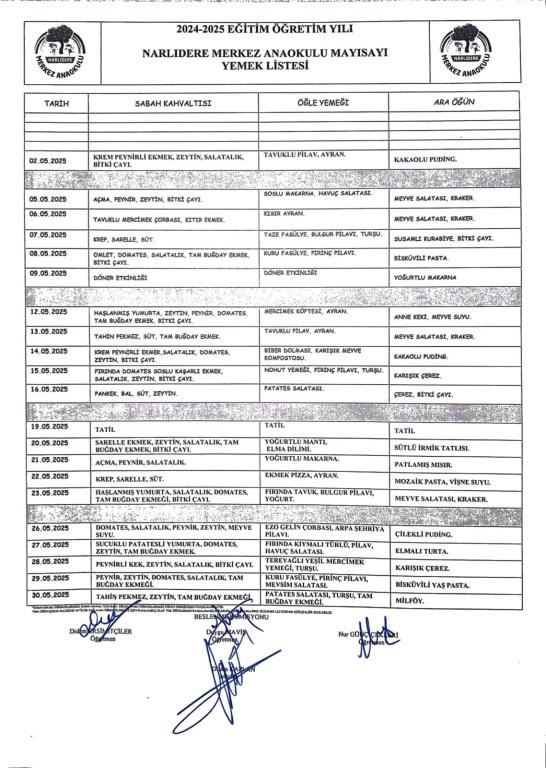 2024-2025 EĞİTİM ÖĞRETİM YILI
NARLIDERE MERKEZ ANAOKULU MAYISAYI
YEMEK LİSTESİ
NARLIDERE
MERKEZ ANAOKULU
NARLIDERE
MERKEZ ANAOKULU
TARİH SABAH KAHVALTISI ÖĞLE YEMEĞİ ARA ÖĞÜN
02.05.2025 KREM PEYNİRLİ EKMEK, ZEYTİN, SALATALIK, TAVUKLU PİLAV, AYRAN. KAKAOLU PUDİNG.
BİTKİ ÇAYI.
05.05.2025 AÇMA, PEYNİR, ZEYTİN, BİTKİ ÇAYI. SOSLU MAKARNA, HAVUÇ SALATASI. MEYVE SALATASI, KRAKER.
06.05.2025 TAVUKLU MERCİMEK ÇORBASI, KITIR EKMEK. KISIR AYRAN. MEYVE SALATASI, KRAKER.
07.05.2025 KREP, SARELLE, SÜT. TAZE FASÜLYE, BULGUR PİLAVI, TURŞU. SUSAMLI KURABİYE, BİTKİ ÇAYI.
08.05.2025 OMLET, DOMATES, SALATALIK, TAM BUĞDAY EKMEK, KURU FASÜLYE, PİRİNÇ PİLAVI. BİSKÜVİLİ PASTA.
BİTKİ ÇAYI.
09.05.2025 DÖNER ETKİNLİĞİ DÖNER ETKİNLİĞİ YOĞURTLU MAKARNA
12.05.2025 HAŞLANMIŞ YUMURTA, ZEYTİN, PEYNİR, DOMATES, MERCİMEK KÖFTESİ, AYRAN. ANNE KEKİ, MEYVE SUYU.
TAM BUĞDAY EKMEK, BİTKİ ÇAYI.
13.05.2025 TAHİN PEKMEZ, SÜT, TAM BUĞDAY EKMEK. TAVUKLU PİLAV, AYRAN. MEYVE SALATASI, KRAKER.
14.05.2025 KREM PEYNİRLİ EKMEK,SALATALIK, DOMATES, BİBER DOLMASI, KARIŞIK MEYVE KAKAOLU PUDİNG.
ZEYTİN, BİTKİ ÇAYI. KOMPOSTOSU.
15.05.2025 FIRINDA DOMATES SOSLU KAŞARLI EKMEK, NOHUT YEMEĞİ, PİRİNÇ PİLAVI, TURŞU. KARIŞIK ÇEREZ.
SALATALIK, ZEYTİN, BİTKİ ÇAYI.
16.05.2025 PANKEK, BAL, SÜT, ZEYTİN. PATATES SALATASI. ÇEREZ, BİTKİ ÇAYI.
19.05.2025 TATİL TATİL TATİL
20.05.2025 SARELLE EKMEK, ZEYTİN, SALATALIK, TAM YOĞURTLU MANTI, SÜTLÜ İRMİK TATLISI.
BUĞDAY EKMEK, BİTKİ ÇAYI. ELMA DİLİMİ.
21.05.2025 AÇMA, PEYNİR, SALATALIK. YOĞURTLU MAKARNA. PATLAMIŞ MISIR.
22.05.2025 KREP, SARELLE, SÜT. EKMEK PİZZA, AYRAN. MOZAİK PASTA, VİŞNE SUYU.
23.05.2025 HAŞLANMIŞ YUMURTA, SALATALIK, DOMATES, FIRINDA TAVUK, BULGUR PİLAVI, MEYVE SALATASI, KRAKER.
TAM BUĞDAY EKMEĞİ, BİTKİ ÇAYI. YOĞURT.
26.05.2025 DOMATES, SALATALIK, PEYNİR, ZEYTİN, MEYVE EZO GELİN ÇORBASI, ARPA ŞEHRİYA ÇİLEKLİ PUDİNG.
SUYU. PİLAVI.
27.05.2025 SUCUKLU PATATESLİ YUMURTA, DOMATES, FIRINDA KIYMALI TÜRLÜ, PİLAV, ELMALI TURTA.
ZEYTİN, TAM BUĞDAY EKMEK. HAVUÇ SALATASI.
28.05.2025 PEYNİRLİ KEK, ZEYTİN, SALATALIK, BİTKİ ÇAYI. TEREYAĞLI YEŞİL MERCİMEK KARIŞIK ÇEREZ.
YEMEĞİ, TURŞU.
29.05.2025 PEYNİR, ZEYTİN, DOMATES, SALATALIK, TAM KURU FASÜLYE, PİRİNÇ PİLAVI, BİSKÜVİLİ YAŞ PASTA.
BUĞDAY EKMEĞİ. MEVSİM SALATASI.
30.05.2025 TAHİN PEKMEZ, ZEYTİN, TAM BUĞDAY EKMEĞİ. PATATES SALATASI, TURŞU, TAM MİLFÖY.
BUĞDAY EKMEĞİ.
Öğretmen Öğretmen